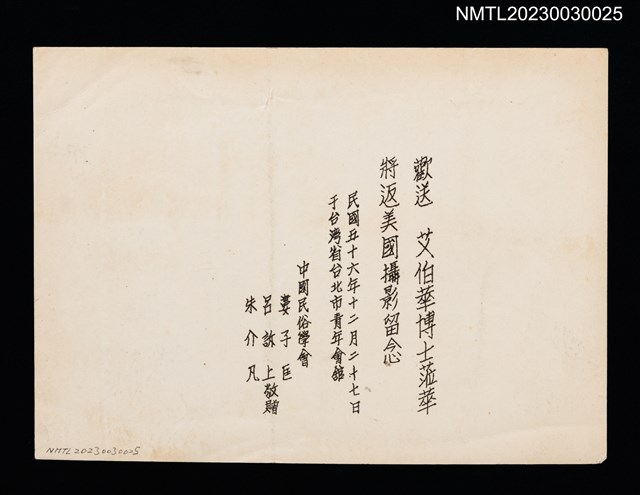 NMTL20230030025
歡送　艾伯華博士蒞華
將返美國攝影留念
民國五十六年十二月二十七日
于台灣省台北市青年會舘
中國民俗學會
婁子匡
呂訴上敬贈
朱介凡
NMTL20230030025